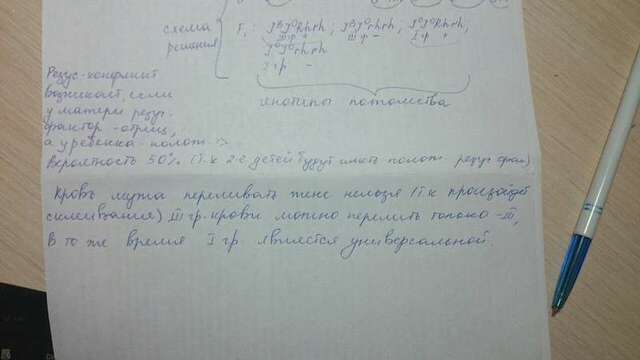 схема
решения
F₁: JᴮJᴼRhrh; JᴮJᴼrhrh; JᴼJᴼRhrh,
III гр + III гр – I гр +
JᴼJᴼrhrh
I гр –
генотипы потомства
Резус-конфликт
возникает, если
у матери резус-
фактор - отриц,
а у ребенка - полож =>
вероятность 50% (т.к 2-е детей будут иметь полож резус фак)
Кровь мужа переливать жене нельзя (т.к произойдет
склеивание) III гр. крови можно перелить только III,
В то же время I гр. является универсальной.